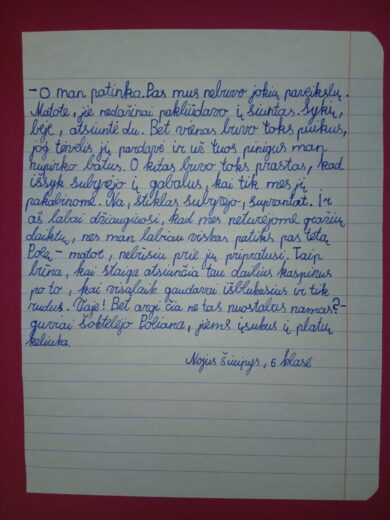 - O man patinka. Pas mus nebuvo jokių paveikslų.
Matote, jie nedažnai pakliūdavo į siuntas. Sykį,
beje, atsiuntė du. Bet vienas buvo toks puikus,
jog tėvelis jį pardavė ir už tuos pinigus man
nupirko batus. O kitas buvo toks prastas, kad
iššyk subyrėjo į gabalus, kai tik mes jį
pakabinome. Na, stiklas subyrėjo, suprantat. Ir
aš labai džiaugiuosi, kad mes neturėjome gražių
daiktų, nes man labiau viskas patiks pas tetą
Polę, - matot, nebūsiu prie jų pripratusi. Taip
būna, kai staiga atsiunčia tau dailius kaspinus
po to, kai visąlaik gaudavai išblukusius ir tik
rudus. Vaje! Bet argi čia ne tas nuostabus namas? -
guviai šoktelėjo Poliana, jiems įsukus į platų
keliuką.
Nojus Šiupys, 6 klasė